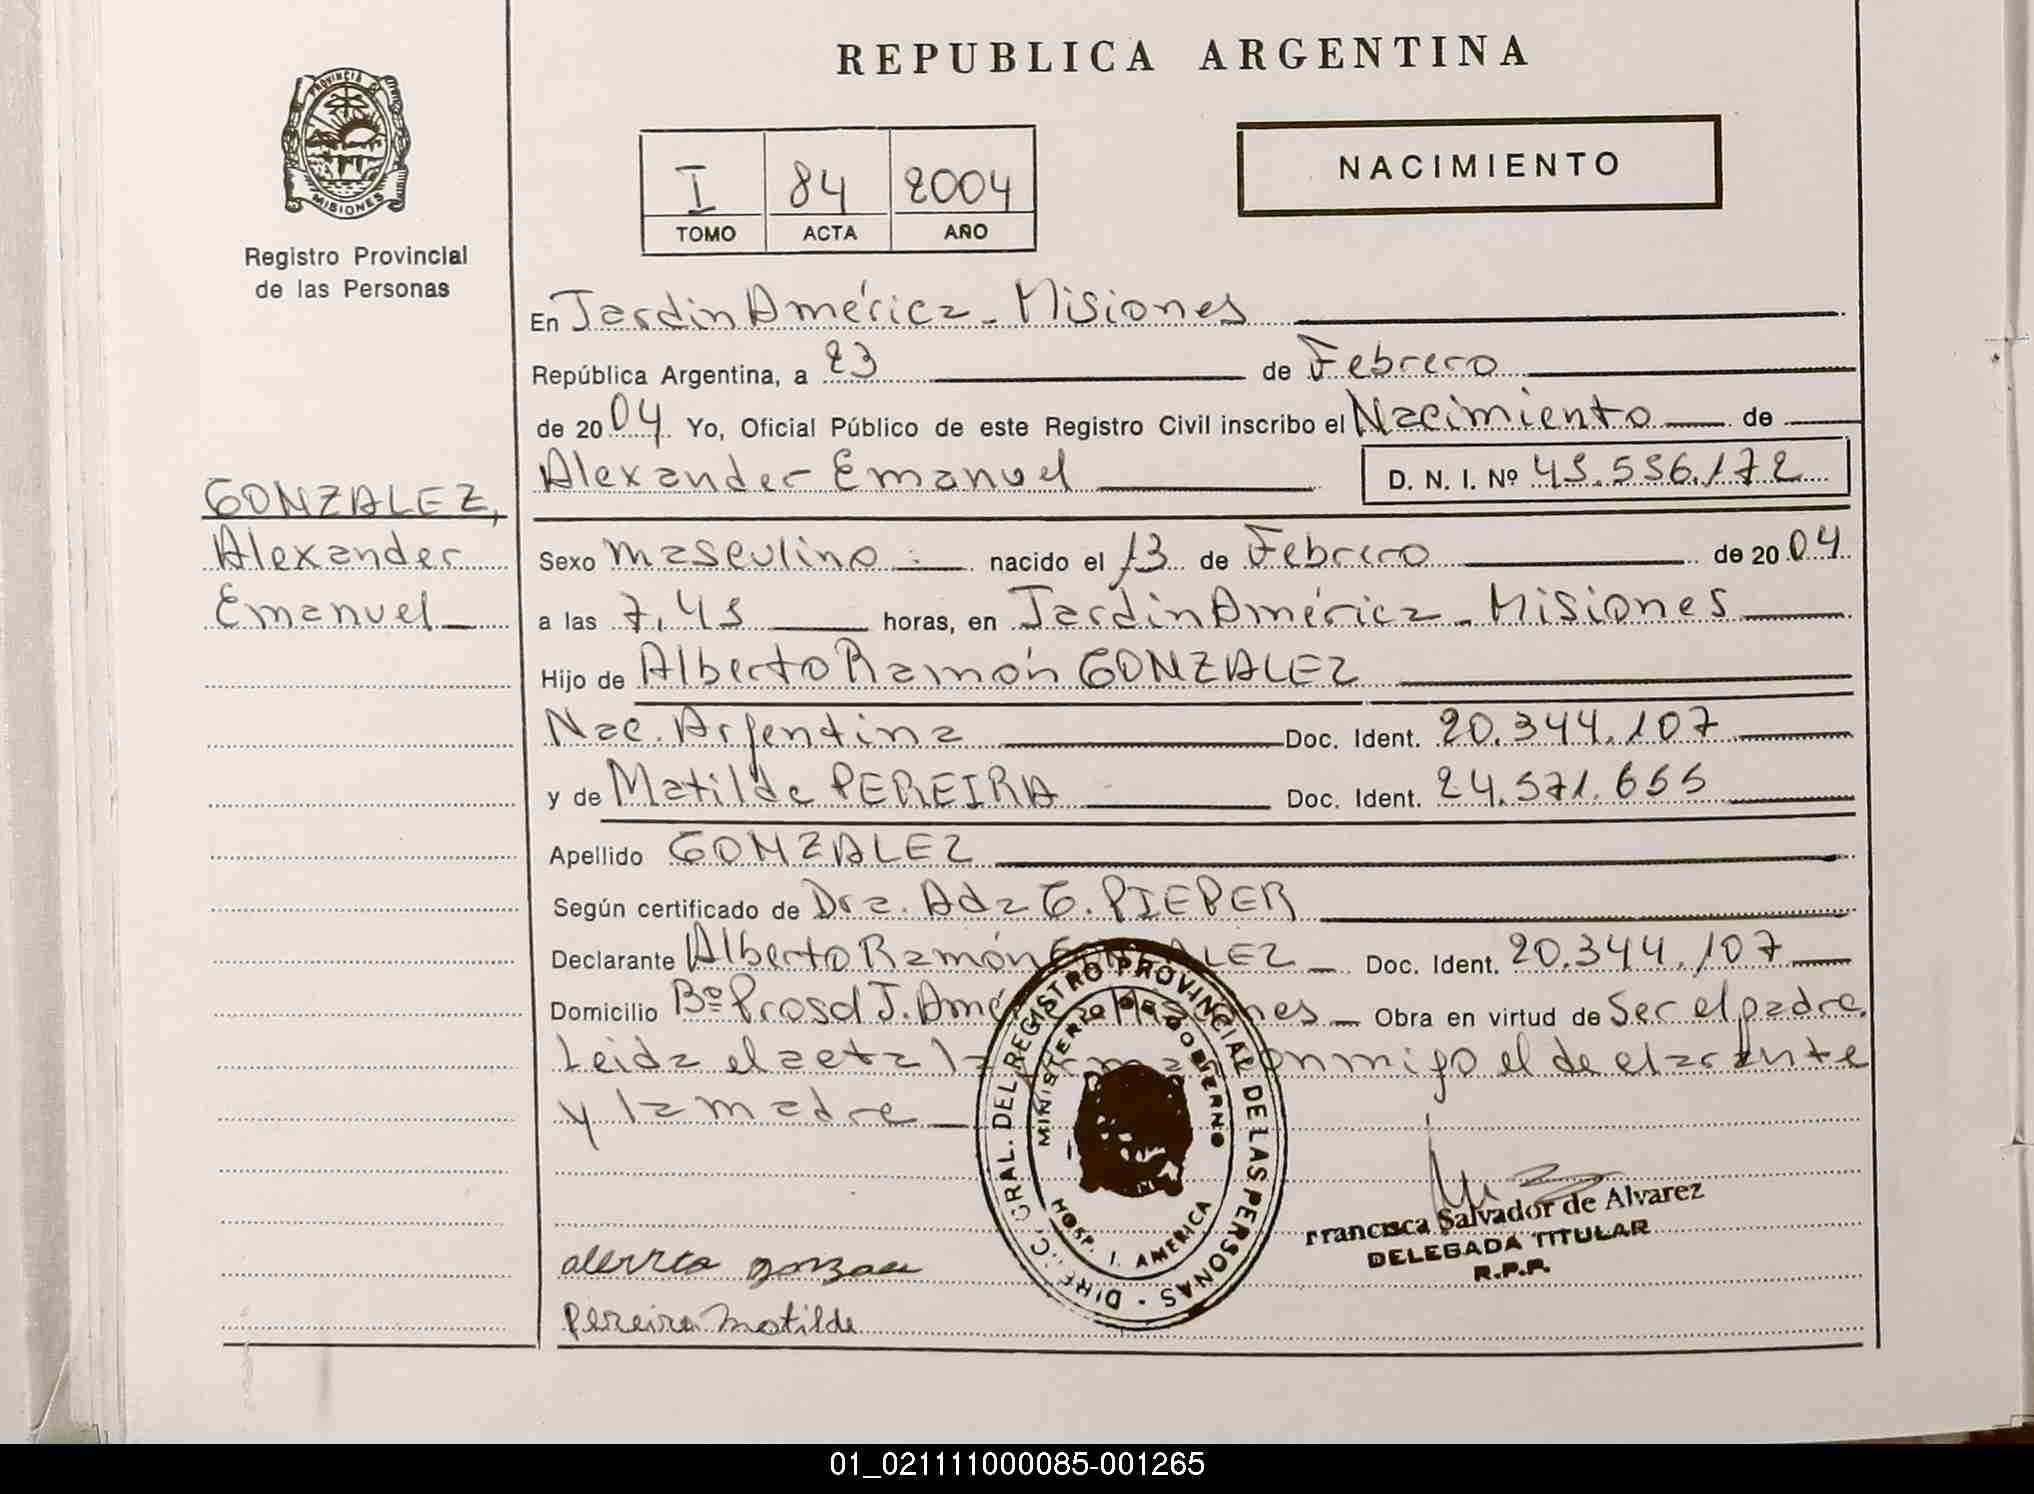 REPUBLICA ARGENTINA
PROVINCIA DE
MISIONES
Registro Provincial
de las Personas
I 84 2004
TOMO ACTA AÑO
NACIMIENTO
En Jardin América - Misiones
República Argentina, a 23 de Febrero
de 2004 Yo, Oficial Público de este Registro Civil inscribo el Nacimiento de
Alexander Emanuel D. N. I. Nº 45.556.172
GONZALEZ,
Alexander
Emanuel
Sexo masculino nacido el 13 de Febrero de 2004
a las 7,45 horas, en Jardin América - Misiones
Hijo de Alberto Ramón GONZALEZ
Nac. Argentina Doc. Ident. 20.344.107
y de Matilde PEREIRA Doc. Ident. 24.571.655
Apellido GONZALEZ
Según certificado de Dra. Ada G. PIEPER
Declarante Alberto Ramón GONZALEZ Doc. Ident. 20.344.107
Domicilio Bº Prosol J. Amé Misiones Obra en virtud de Ser el padre.
Leida el acta la firma conmigo el declarante
y la madre
DIREC. GRAL. DEL REGISTRO PROVINCIAL DE LAS PERSONAS -
MINISTERIO DE GOBIERNO
HOSP. J. AMERICA
Francisca Salvador de Alvarez
DELEGADA TITULAR
R.P.P.
Pereira Matilde
01_021111000085-001265